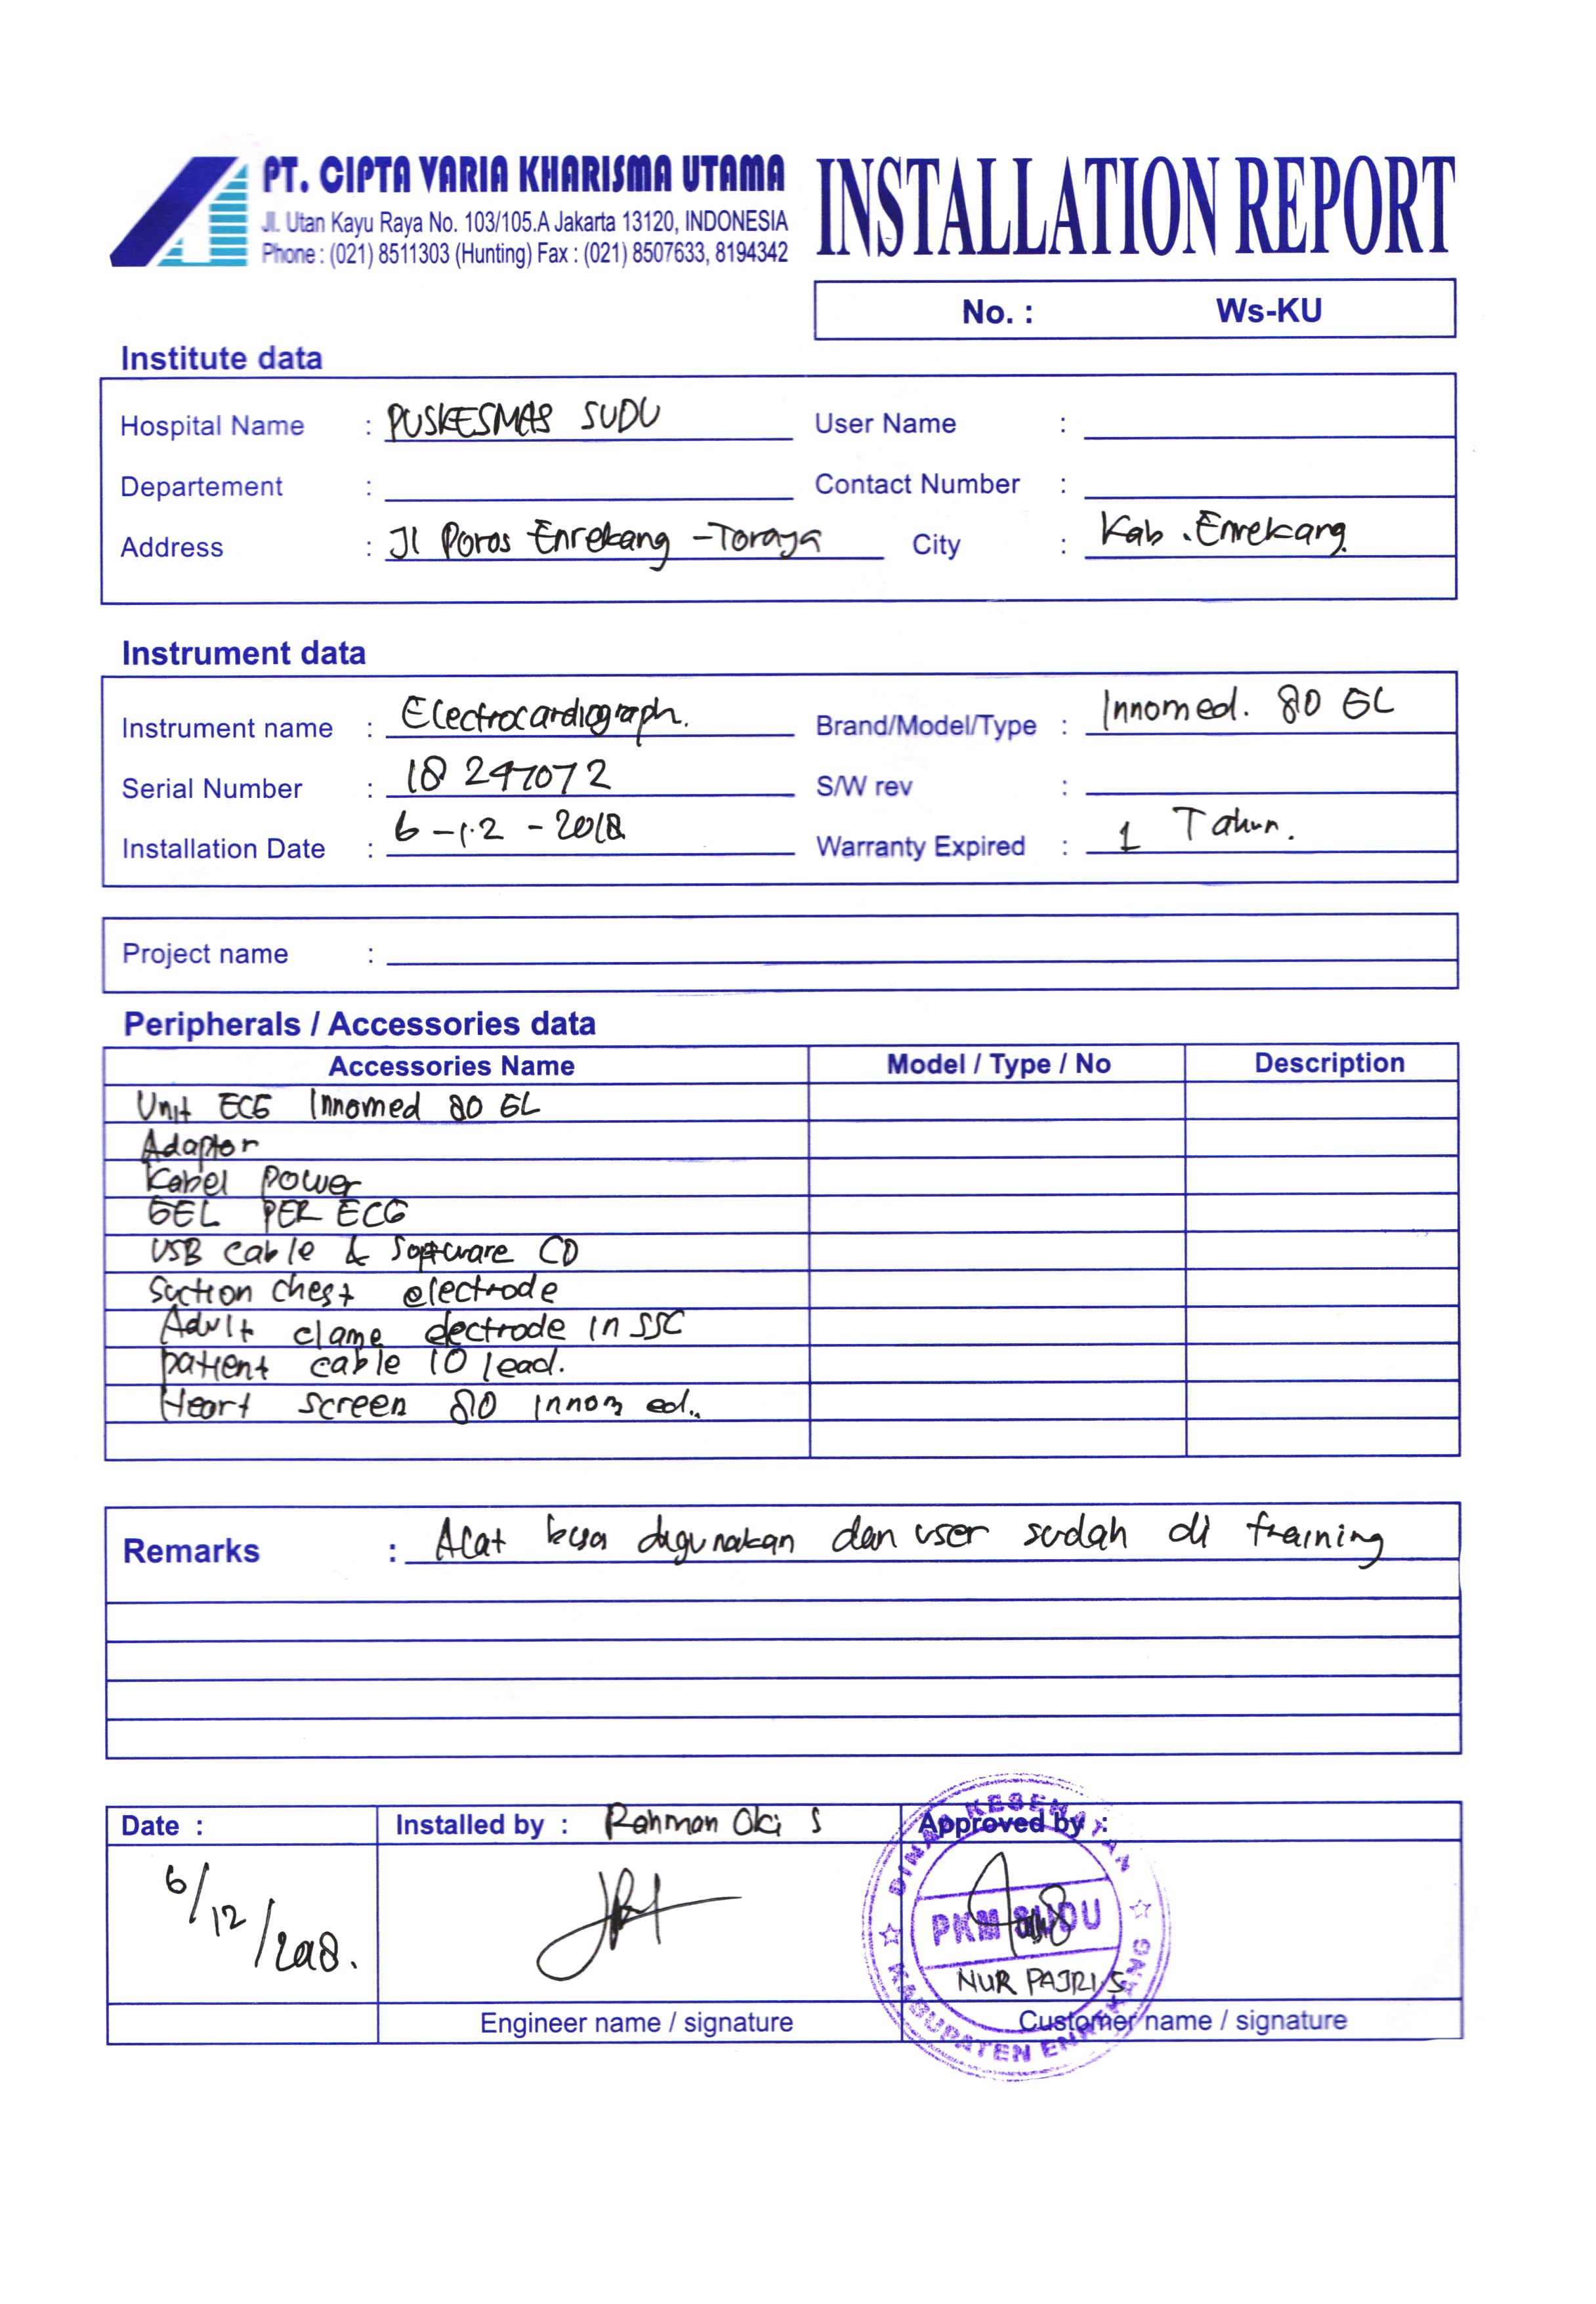 PT. CIPTA VARIA KHARISMA UTAMA
Jl. Utan Kayu Raya No. 103/105.A Jakarta 13120, INDONESIA
Phone : (021) 8511303 (Hunting) Fax : (021) 8507633, 8194342
INSTALLATION REPORT
No. : Ws-KU
Institute data
Hospital Name : PUSKESMAS SUDU User Name :
Departement : Contact Number :
Address : Jl Poros Enrekang - Toraja City : Kab. Enrekang
Instrument data
Instrument name : Electrocardiograph. Brand/Model/Type : Innomed. 80 GL
Serial Number : 18 247072 S/W rev :
Installation Date : 6-12-2018 Warranty Expired : 1 Tahun.
Project name :
Peripherals / Accessories data
Accessories Name Model / Type / No Description
Unit ECG Innomed 80 GL
Adaptor
Kabel Power
GEL PER ECG
USB cable & Software CD
Suction Chest electrode
Adult clame electrode in SSC
patient cable 10 lead.
Heart screen 80 Innomed..
Remarks : Alat bisa digunakan dan user sudah di training
Date : Installed by : Rahman Oki S Approved by :
6/12/2018.
DINAS KESEHATAN
PKM SUDU
KABUPATEN ENREKANG
NUR PAJRI.S
Engineer name / signature Customer name / signature